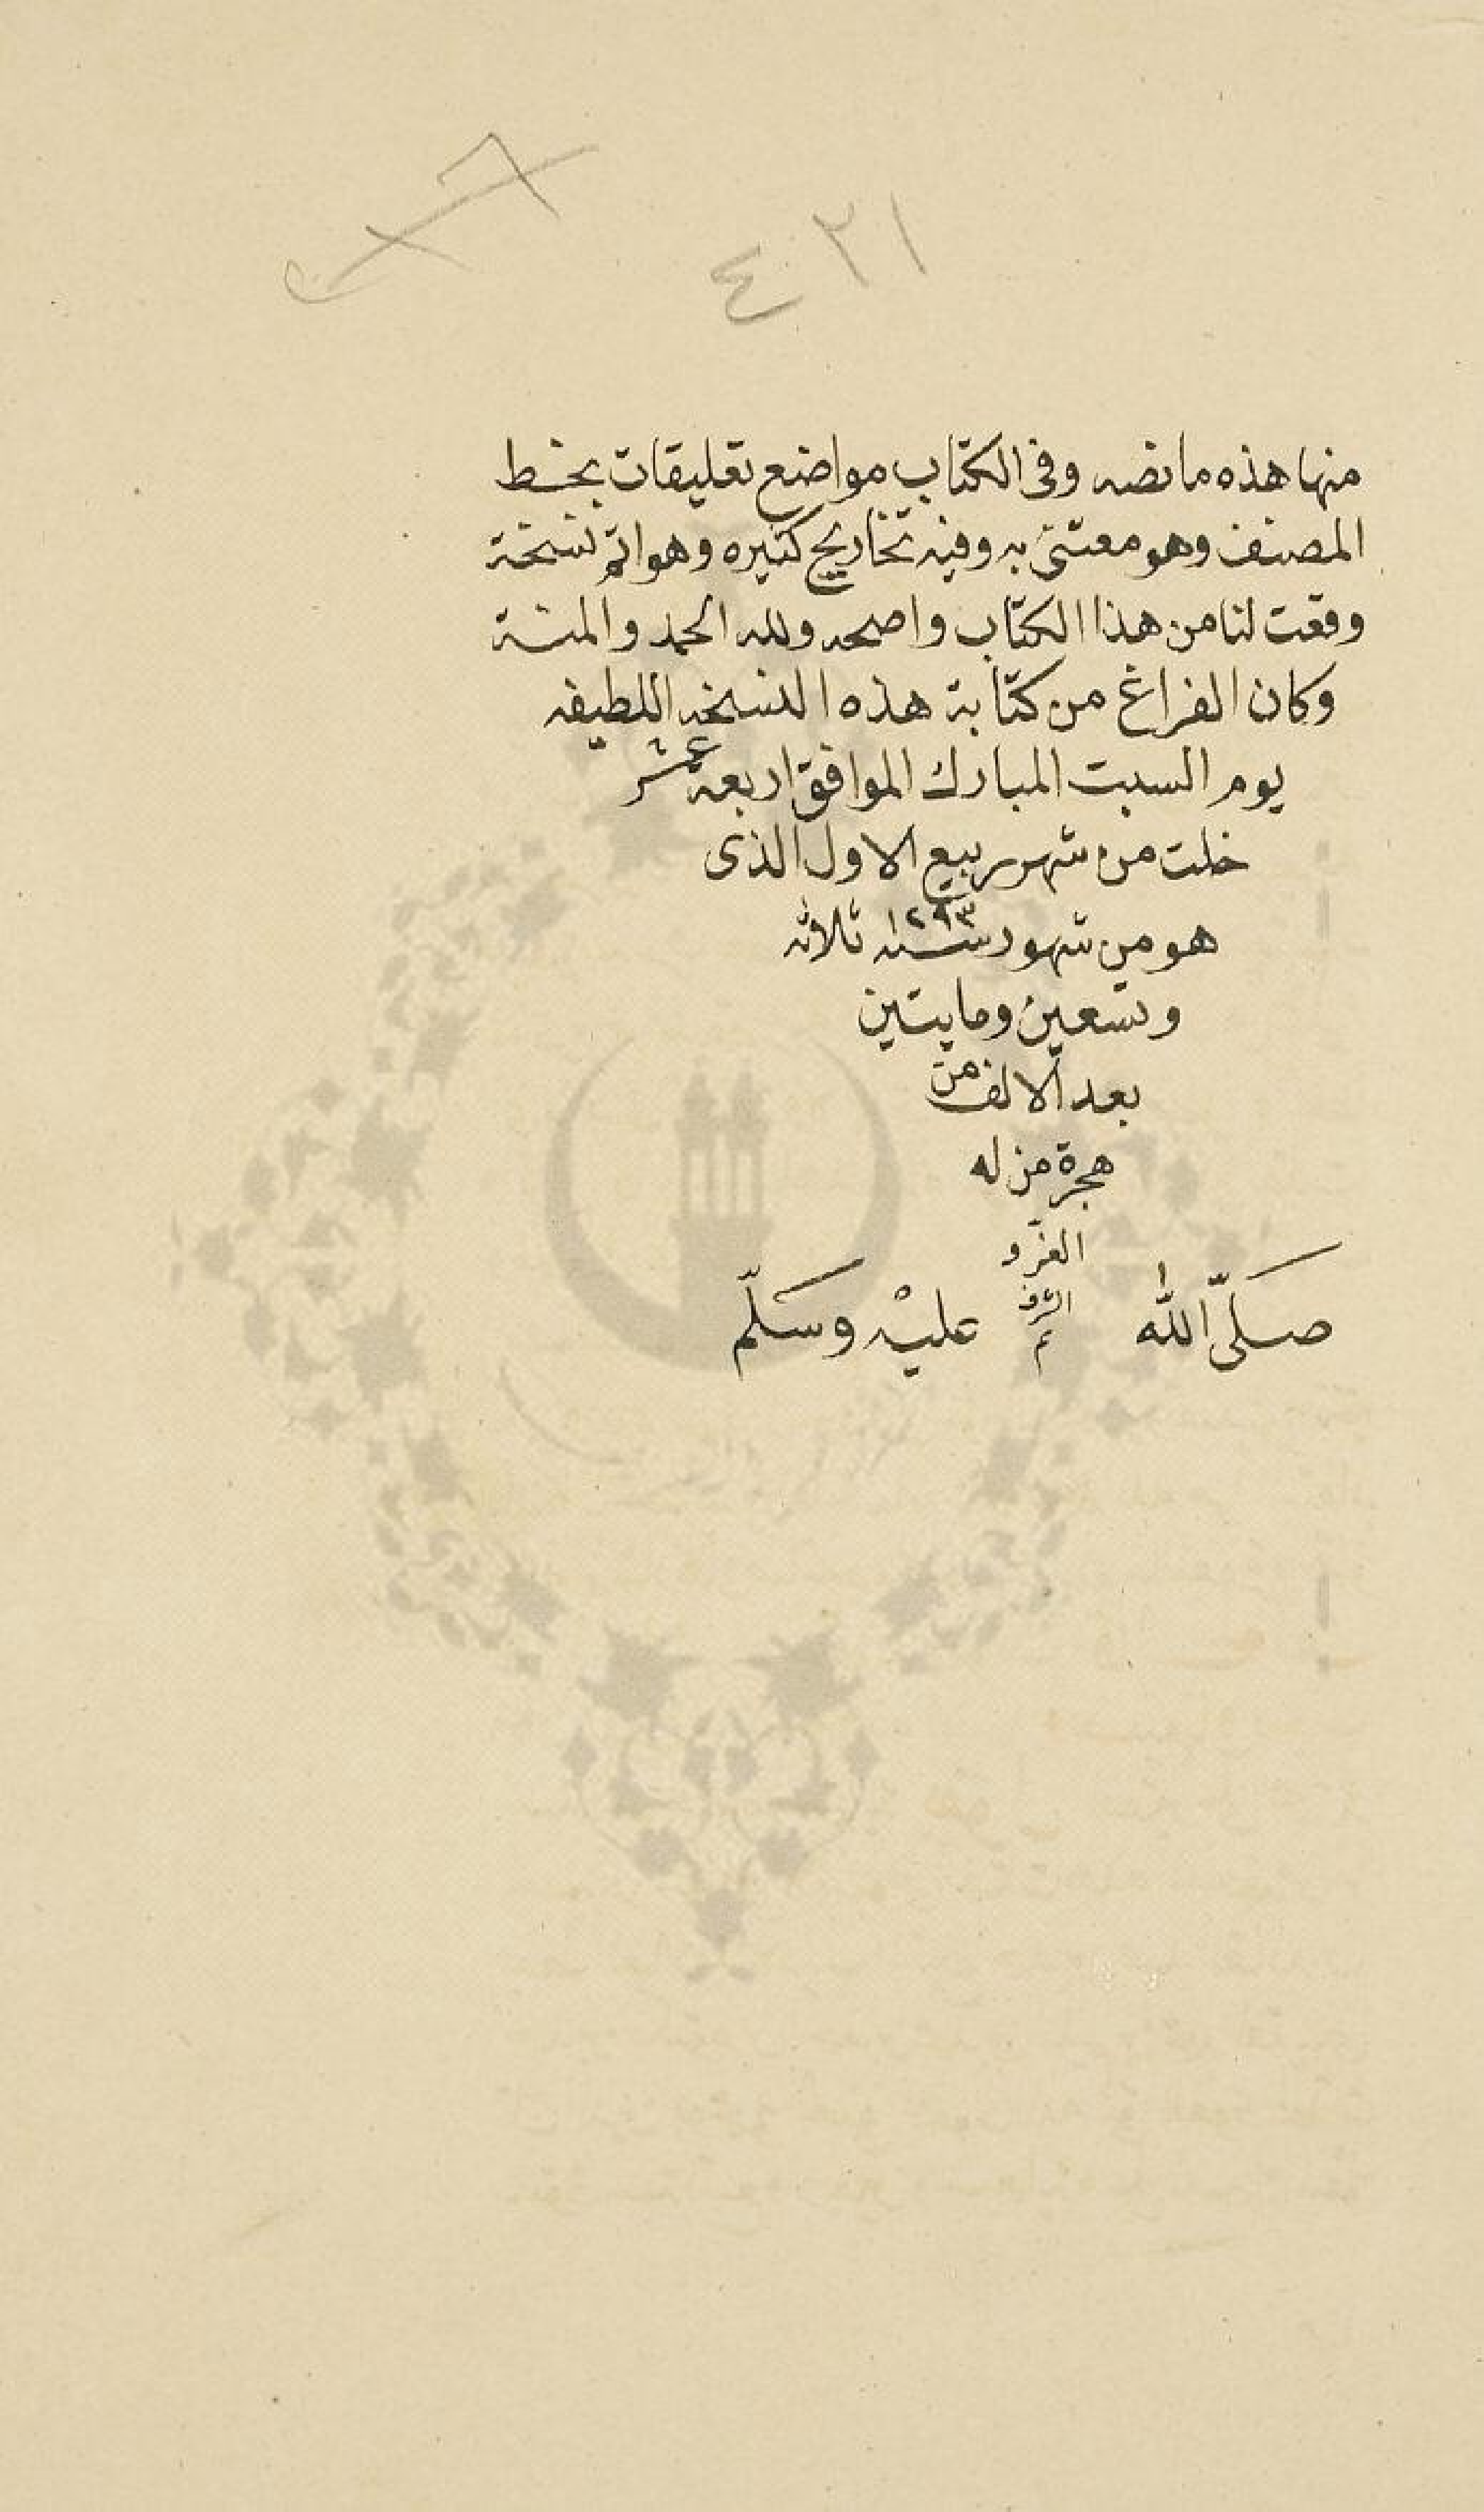 ٤٢١
منها هذه ما نصه وفى الكتاب مواضع تعليقات بخط
المصنف وهو معتنى به وفيه تخاريج كثيره وهو اتم نسخة
وقعت لنا من هذا الكتاب واصحه ولله الحمد والمنة
وكان الفراغ من كتابة هذه النسخه اللطيفه
يوم السبت المبارك الموافق اربعة عشر
خلت من شهر ربيع الاول الذى
هو من شهور سنه ١٢٩٣ ثلاثه
وتسعين ومايتين
بعد الالف من
هجرة من له
العز و
الشرف
صلّى الله عليه وسلّم
م